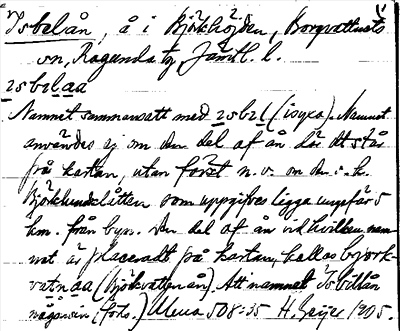 Isbelån, å i Björkhöjden, Borgvattnets
sn, Ragunda tg, Jämtl. l.
ɪsbɛlaa
Namnet sammansatt med ɪsbɛl (isyxa). Namnet
användes ej om den del af ån där det står
på kartan, utan först n. v. om den s. k.
Björklundslåtten som uppgifves ligga ungefär 5
km. från byn. Den del af ån vid hvilken nam-
net är placeradt på kartan, kallas bjørk-
vatnaa (Björkvattenån). Att namnet Isbillån
någonsin (förk.) Ulena 508:35 H. Geijer 1905.